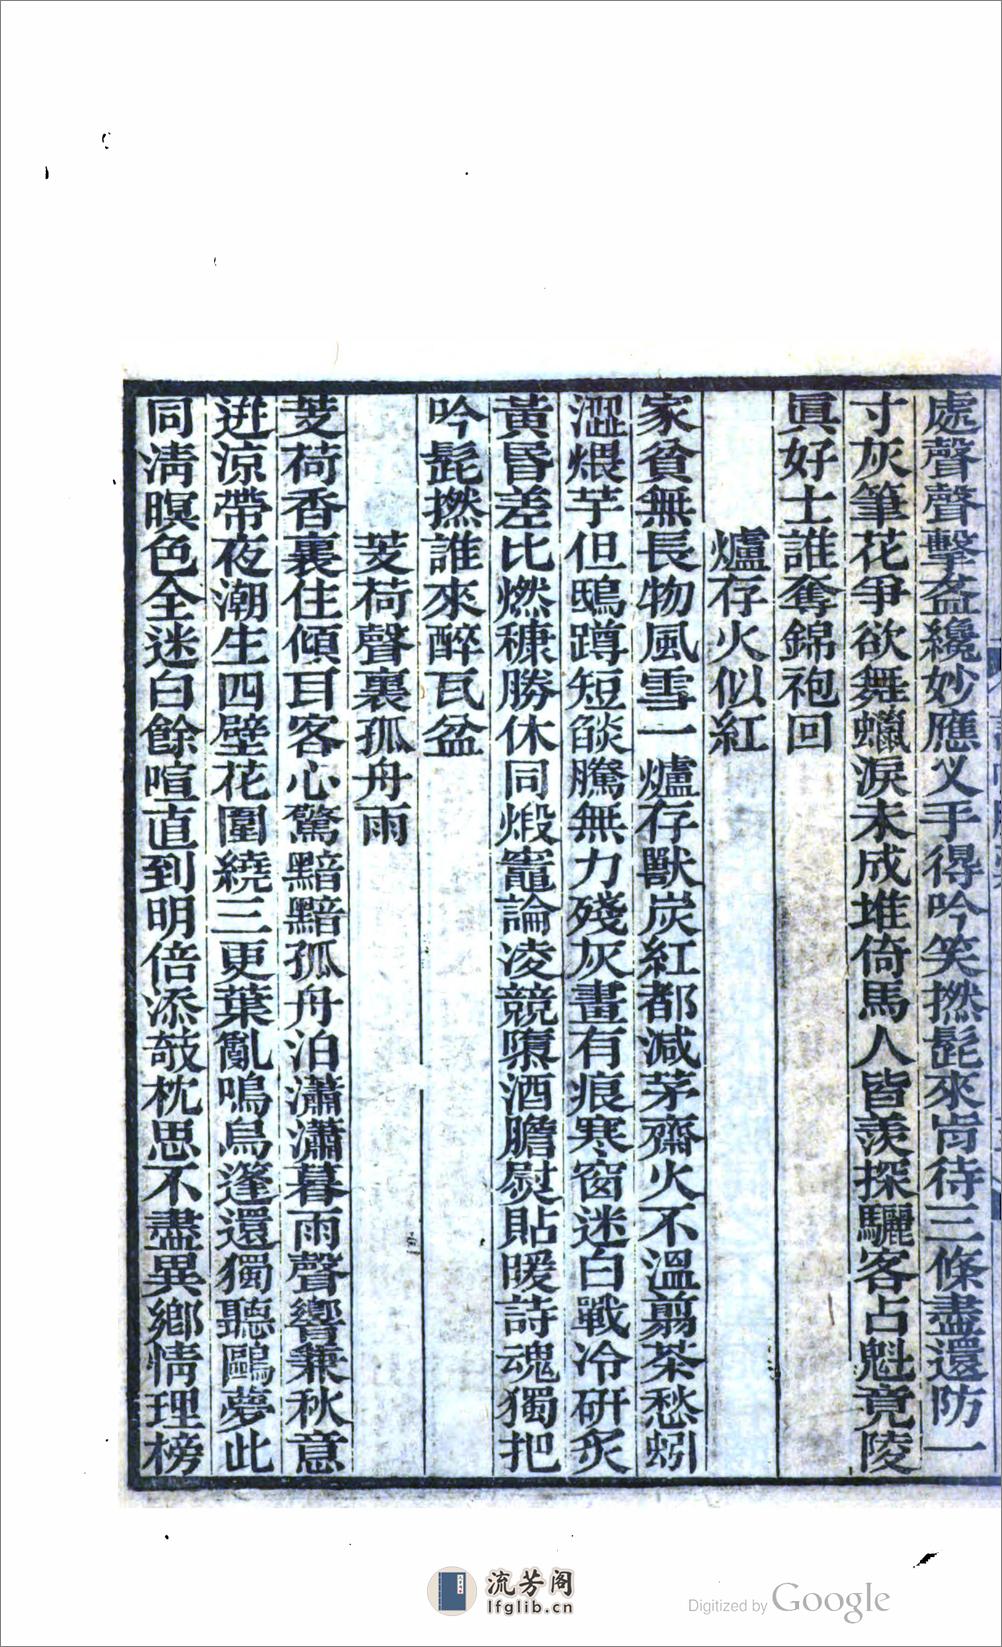 處聲聲擊盋纔妙應叉手得吟笑撚髭來肯待三條盡還防一
寸灰筆花爭欲舞蠟淚未成堆倚馬人皆羨探驪客占魁竟陵
眞好士誰奪錦袍回
爐存火似紅
家貧無長物風雪一爐存獸炭紅都減茅齋火不溫翦茶愁蚓
澀煨芋但鴟蹲短燄騰無力殘灰畫有痕寒窗迷白戰冷硏炙
黃昏差比燃穅勝休同煅竈論凌競隳酒膽熨貼暖詩魂獨把
吟髭撚誰來醉瓦盆
芰荷聲裏孤舟雨
芰荷香裏住傾耳客心驚黯黯孤舟泊瀟瀟暮雨聲響兼秋意
迸涼帶夜潮生四壁花圍繞三更葉亂鳴烏篷還獨聽鷗夢此
同淸暝色全迷白餘喧直到明倍添攲枕思不盡異鄉情理榜
流芳阁
lfglib.cn
Digitized by Google